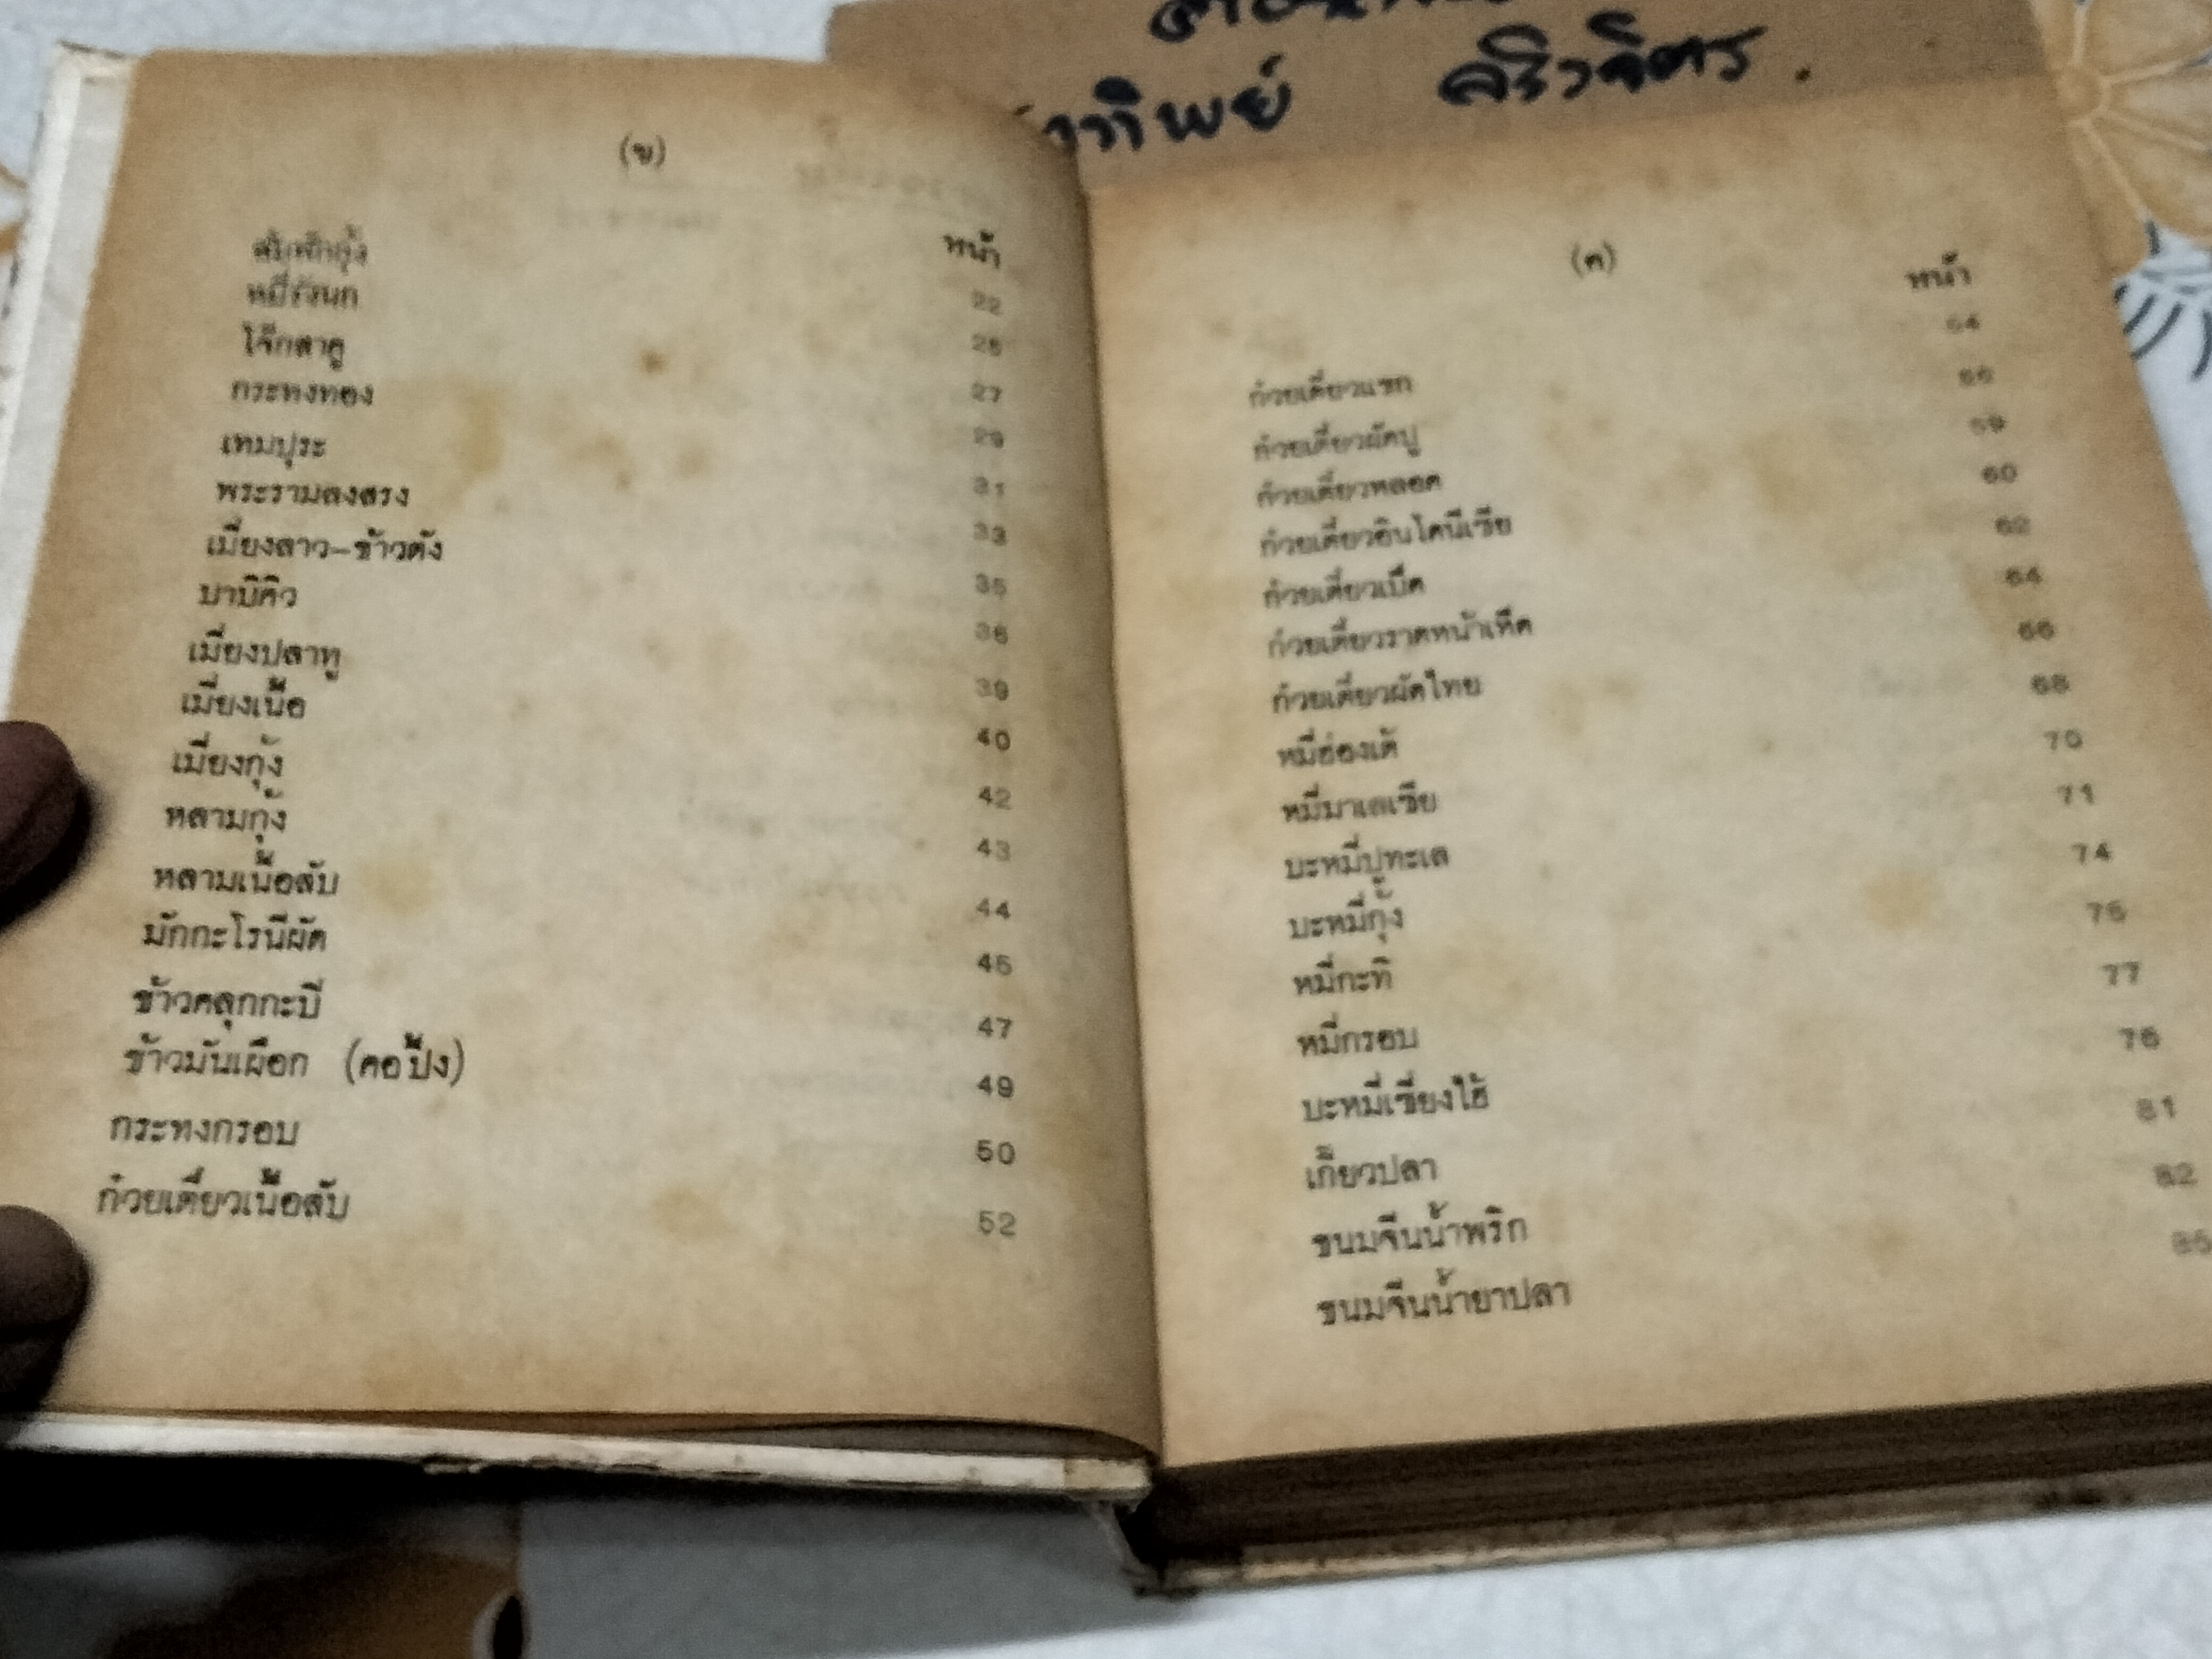 ทิพย์
(ข)
หน้า
หมี่รังนก 22
โจ๊กสาคู 25
กระทงทอง 27
เทมปุระ 29
พระรามลงสรง 31
เมี่ยงลาว-ข้าวตัง 33
บาบีคิว 35
เมี่ยงปลาทู 36
เมี่ยงเนื้อ 39
เมี่ยงกุ้ง 40
หลามกุ้ง 42
หลามเนื้อสับ 43
มักกะโรนีผัด 44
ข้าวคลุกกะปิ 45
ข้าวมันเผือก (คอปึ้ง) 47
กระทงกรอบ 49
ก๋วยเตี๋ยวเนื้อสับ 50
52
(ค)
หน้า
ก๋วยเตี๋ยวแขก
ก๋วยเตี๋ยวผัดปู 59
ก๋วยเตี๋ยวหลอด 60
ก๋วยเตี๋ยวอินโดนีเซีย 62
ก๋วยเตี๋ยวเป็ด 64
ก๋วยเตี๋ยวราดหน้าเห็ด 66
ก๋วยเตี๋ยวผัดไทย 68
หมี่ฮ่องเต้ 70
หมี่มาเลเซีย 71
บะหมี่ปูทะเล 74
บะหมี่กุ้ง 75
หมี่กะทิ 77
หมี่กรอบ
บะหมี่เซี่ยงไฮ้ 81
เกี๊ยวปลา 82
ขนมจีนน้ำพริก
ขนมจีนน้ำยาปลา